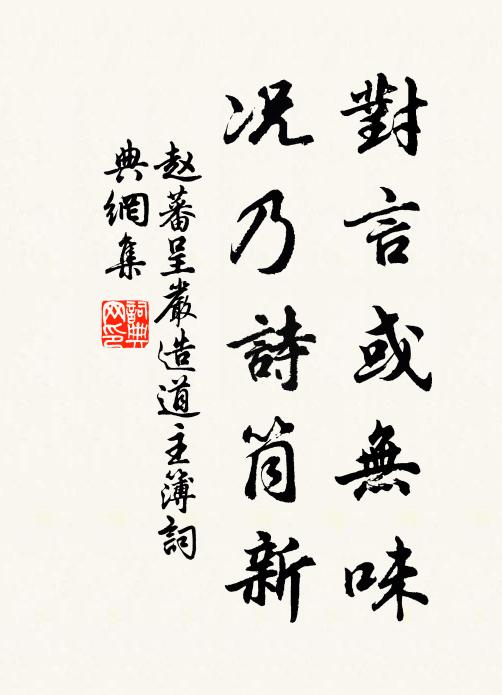 對言或無味
况乃詩筒新
赵蕃呈嚴造道主簿詞
典網集
詞典
网印